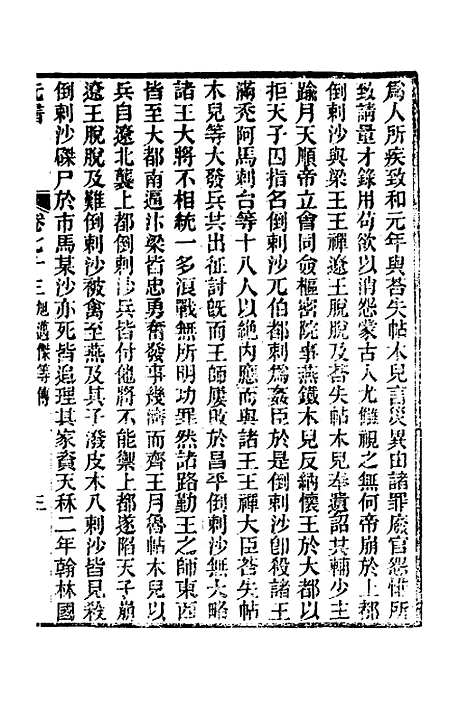 為人所疾致和元年與荅失帖木兒言災異由諸罪廢官怨懟所
致請量才錄用苟欲以消怨蒙古人尤雠視之無何帝崩於上都
倒剌沙與梁王王禪遼王脫脫及荅失帖木兒奉遺詔其輔少主
踰月天順帝立會同僉樞密院事燕鐵木兒反納懷王於大都以
拒天子囚指名倒剌沙兀伯都剌為姦臣於是倒剌沙卽殺諸王
滿禿阿馬剌台等十八人以絶內應而與諸王王禪大臣荅失帖
木兒等大發兵共出征討旣而王師屢敗於昌平倒剌沙無大略
諸王大將不相統一多浪戰無所明功罪然諸路勤王之師東西
皆至大都南逼汴梁皆忠勇奮發事幾濟而齊王月魯帖木兒以
兵自遼北襲上都倒剌沙兵皆付他將不能禦上都遂陷天子崩
遼王脫脫及難倒剌沙被禽至燕及其子潑皮木八剌沙皆見殺
倒剌沙磔尸於市馬某沙亦死皆追理其家資天秝二年翰林國
元書 卷七十三 旭邁傑等傳 三